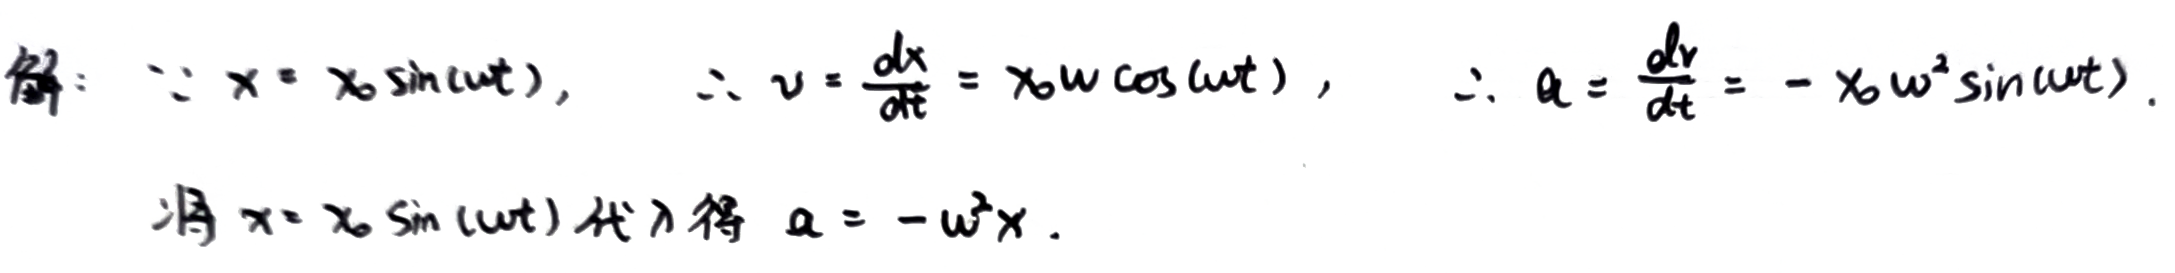 解: ∵ x = x₀ sin(ωt), ∴ v = dx/dt = x₀ω cos(ωt), ∴ a = dv/dt = - x₀ω² sin(ωt).
将 x = x₀ sin(ωt) 代入得 a = -ω²x.